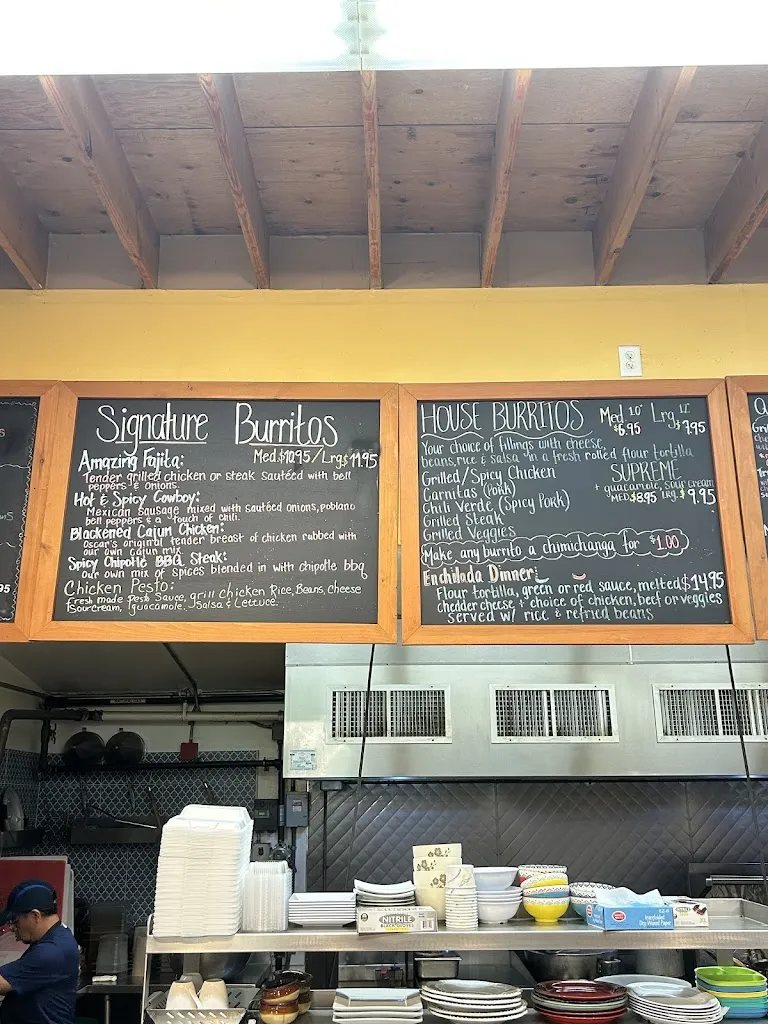 Signature Burritos
Amazing Fajita: Med.$10.95/Lrg$11.95
Tender grilled chicken or steak Sautéed with bell
peppers & onions.
Hot & Spicy Cowboy:
Mexican Sausage mixed with sautéed onions, poblano
bell peppers & a touch of chili.
Blackened Cajun Chicken:
Oscar's original tender breast of chicken rubbed with
our own cajun mix
Spicy Chipotle BBQ Steak:
our own mix of spices blended in with chipotle bbq
Chicken Pesto:
Fresh made pesto sauce, grill chicken Rice, Beans, cheese
Sourcream, guacamole, Salsa & Lettuce.
HOUSE BURRITOS Med 10" Lrg 12"
$6.95 $7.95
Your choice of fillings with cheese,
beans, rice & salsa in a fresh rolled flour tortilla
Grilled/Spicy Chicken
Carnitas (Pork)
Chili Verde (Spicy Pork)
Grilled Steak
Grilled Veggies
SUPREME
+ guacamole, sour cream
MED.$8.95 LRG.$9.95
Make any burrito a chimichanga for $1.00
Enchilada Dinner:
Flour tortilla, green or red sauce, melted $14.95
chedder cheese + choice of chicken, beef or veggies
served w/ rice & refried beans
95
NITRILE
BLACK GLOVES